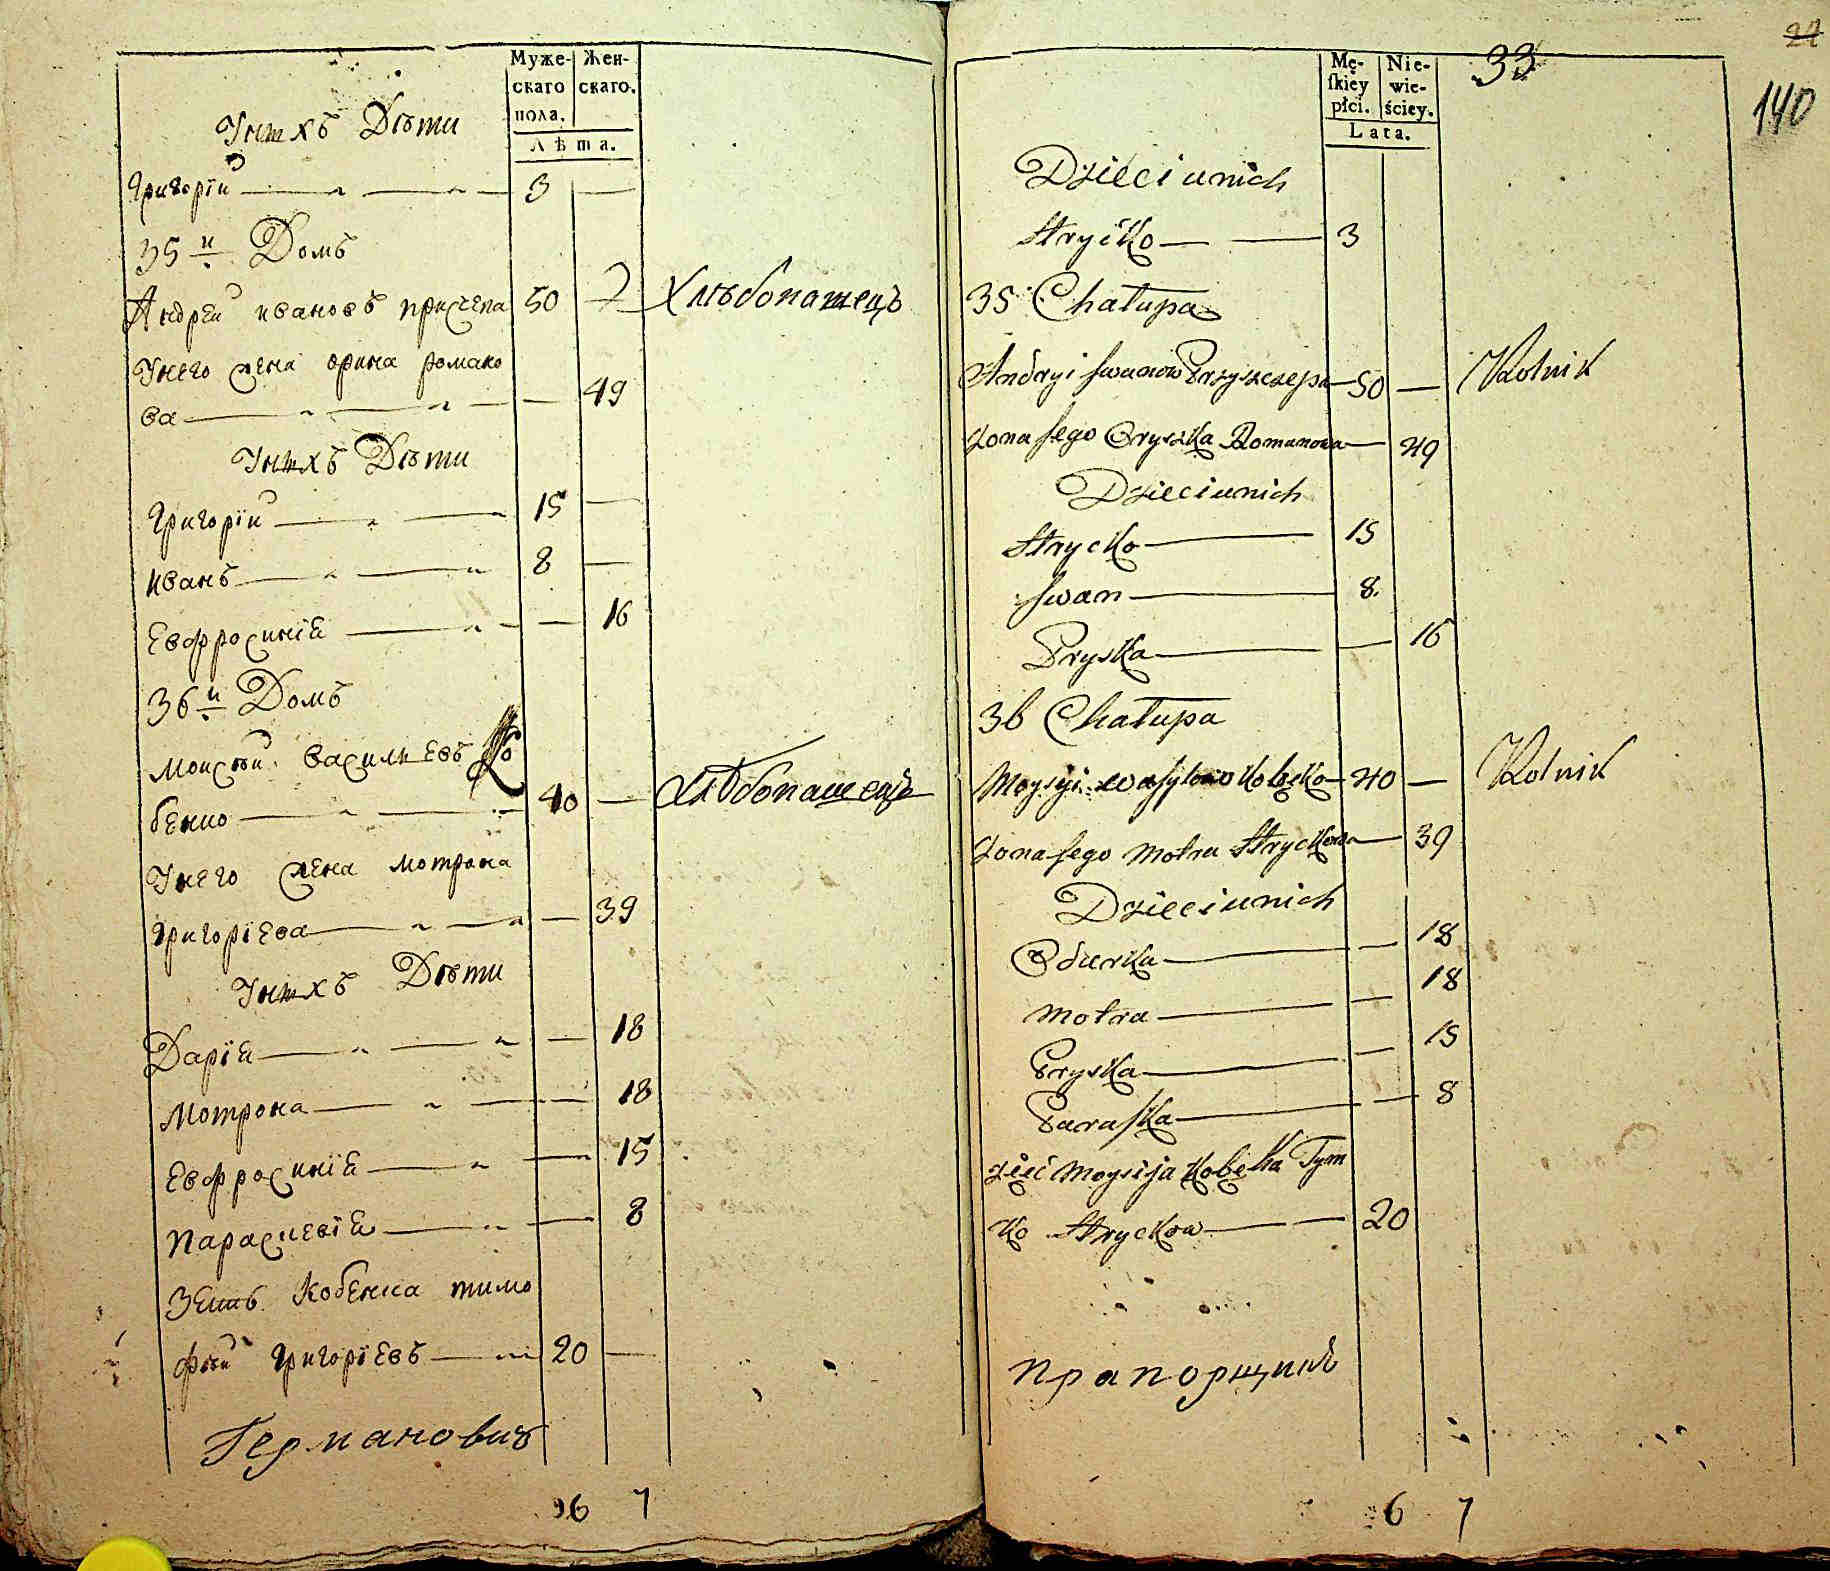 Муже- Жен-
скаго скаго.
пола.
Лѣта.
Унихъ Дѣти
Григорїй 3
35й Домъ
Андрей ивановъ прищепа 50 Хлѣбопашецъ
Унего жена орина романо
ва 49
Унихъ Дѣти
Григорїй 15
иванъ 8
Евфросинїя 16
36й Домъ
Моисѣй васильевъ Ко
бенко 40 Хлѣбопашецъ
Унего жена мотрона
григорїева 39
Унихъ Дѣти
Дарїя 18
Мотрона 18
Евфросинїя 15
параскевїя 8
Зять Кобенка тимо
фѣй григорїевъ 20
Германовичъ
6 7
24
33
140
Mę- Nie-
ſkiey wie-
płci. ściey.
Lata.
Dzieci unich
Hryćko 3
35 Chałupa
Andryi Iwanow Przyszczepa 50 Rolnik
Zona Jego Oryszka Romanowa 49
Dzieci unich
Hrycko 15
Iwan 8.
Pryska 16
36 Chałupa
Moysiji Wasylow Kobeko 40 Rolnik
Zona Jego Motra Hryckowa 39
Dzieci unich
Odarka 18
Motra 18
Pryska 15
Paraſka 8
zięć Moysija Kobeka Tym
ko Hryckow 20
Прапорщикъ
6 7